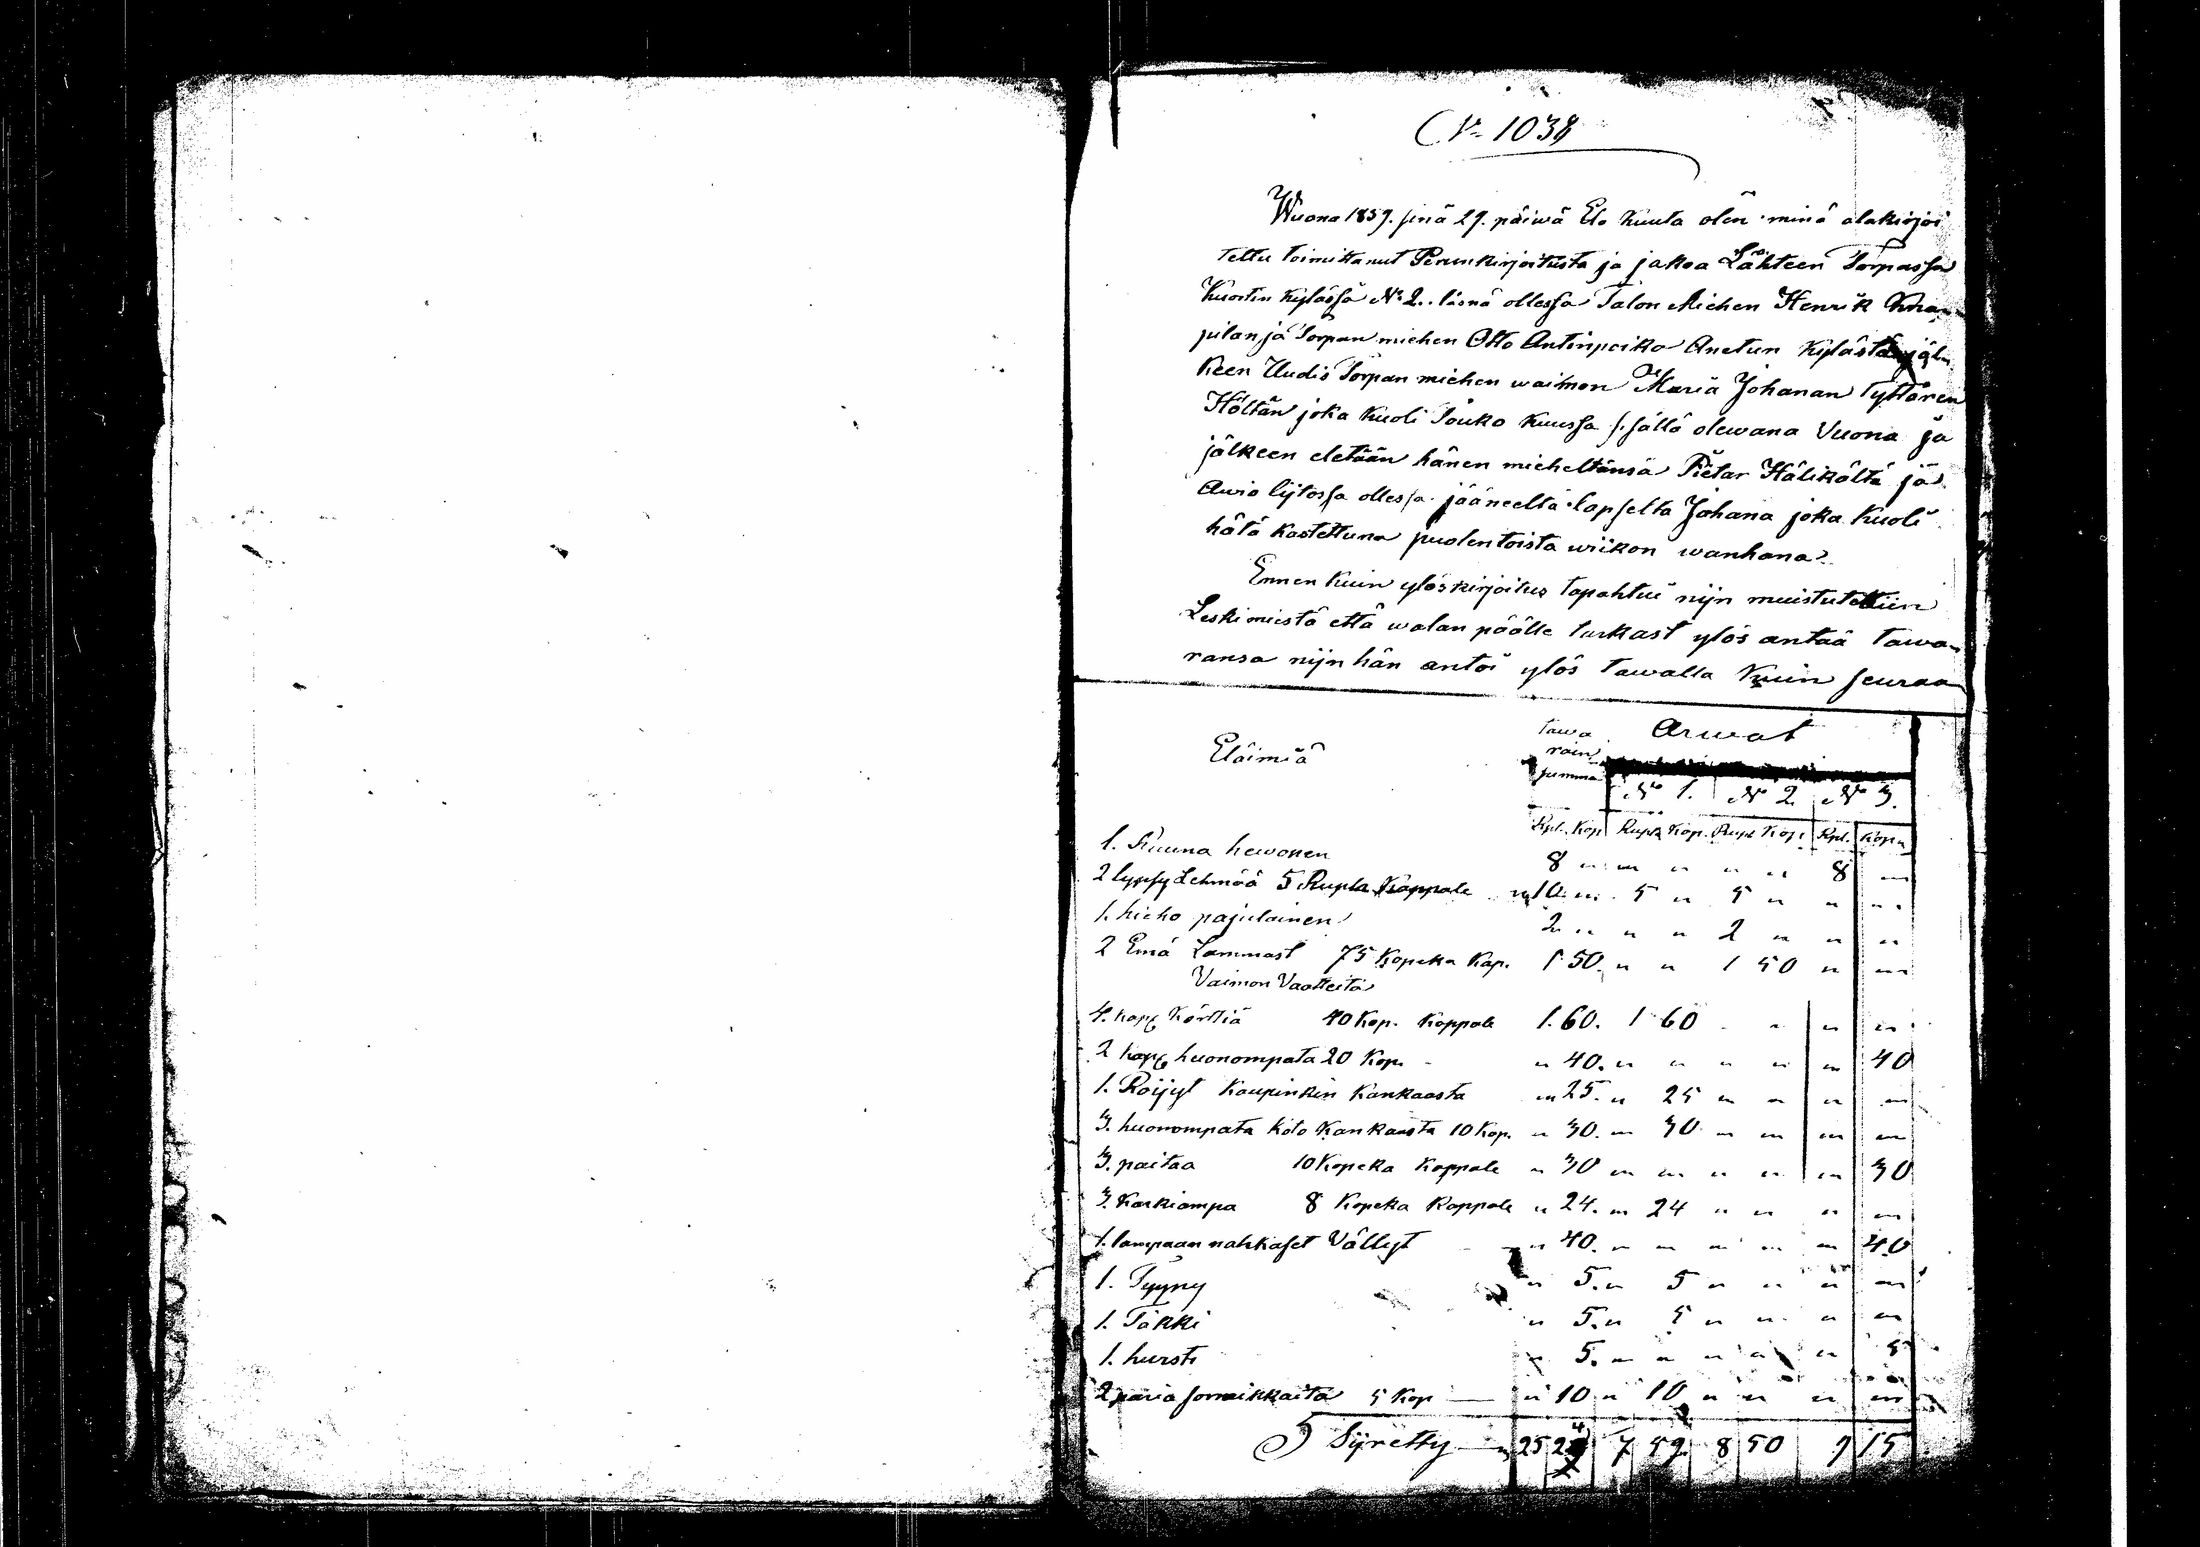 No 1038
Wuona 1859. sinä 29. päiwä Elo Kuuta olen minä alakirjoi
tettu toimittanut Perunkirjoitusta ja jakoa Lähteen Torpassa
Kuortin kylässä No 2. läsnä ollessa Talon Miehen Henrik
pilan ja Torpan miehen Otto Antinpoika Anetun Kylästä jäl
keen Uudis Torpan miehen waimon Maria Johanan Tyttären
Höltän joka Kuoli Touko Kuussa sisällä olewana Vuona ja
jälkeen eletään hänen mieheltänsä Pietar Hälikältä ja
Awio lijtossa ollessa jääneeltä lapselta Johana joka Kuoli
hätä kastettuna puolentoista wiikon wanhana
Ennen Kuin ylöskirjoitus tapahtui nijn muistutettiin
Leskimiestä että walan päälle tarkast ylös antaa tawa
ransa nijn hän antoi ylös tawalla Kuin seuraa
Eläimiä tawa rain summa Arwat
No 1. No 2 No 3.
Rpl. Kop Rupla Kop. Rupl Kop. Rpl. Kop
1. Ruuna hewonen 8 " " " " " 8 "
2 lypsy Lehmää 5 Rupla Kappale 10 " 5 " 5 " " "
1. hieho pajulainen 2 " " " 2 " " "
2 Emä Lammast 75 Kopeka Kap. 1 50. " " 1 50 " "
Vaimon Vaatteita
4. kap Körttiä 40 Kop. Kappale 1. 60. 1 60 " " "
2 kap huonompata 20 Kop. " 40. " " " " " 40
1. Röijyt Kaupinkin Kankaasta " 25. " 25 " " " "
3. huonompata Koto Kankaasta 10 Kop. " 30. " 30 " " " "
3. paitaa 10 Kopeka Kappale " 30 " " " " " 30
3. Karkiampa 8 Kopeka Kappale " 24. " 24 " " " "
1. lampaan nahkaset Vällyt " 40. " " " " " 40
1. Tyyny " 5. " 5 " " " "
1. Täkki " 5. " 5 " " " "
1. hursti " 5. " " " " " 5
2 paria sormikkaita 5 Kop " 10 " 10 " " " "
Sijretty 25 24 7 59 8 50 9 15